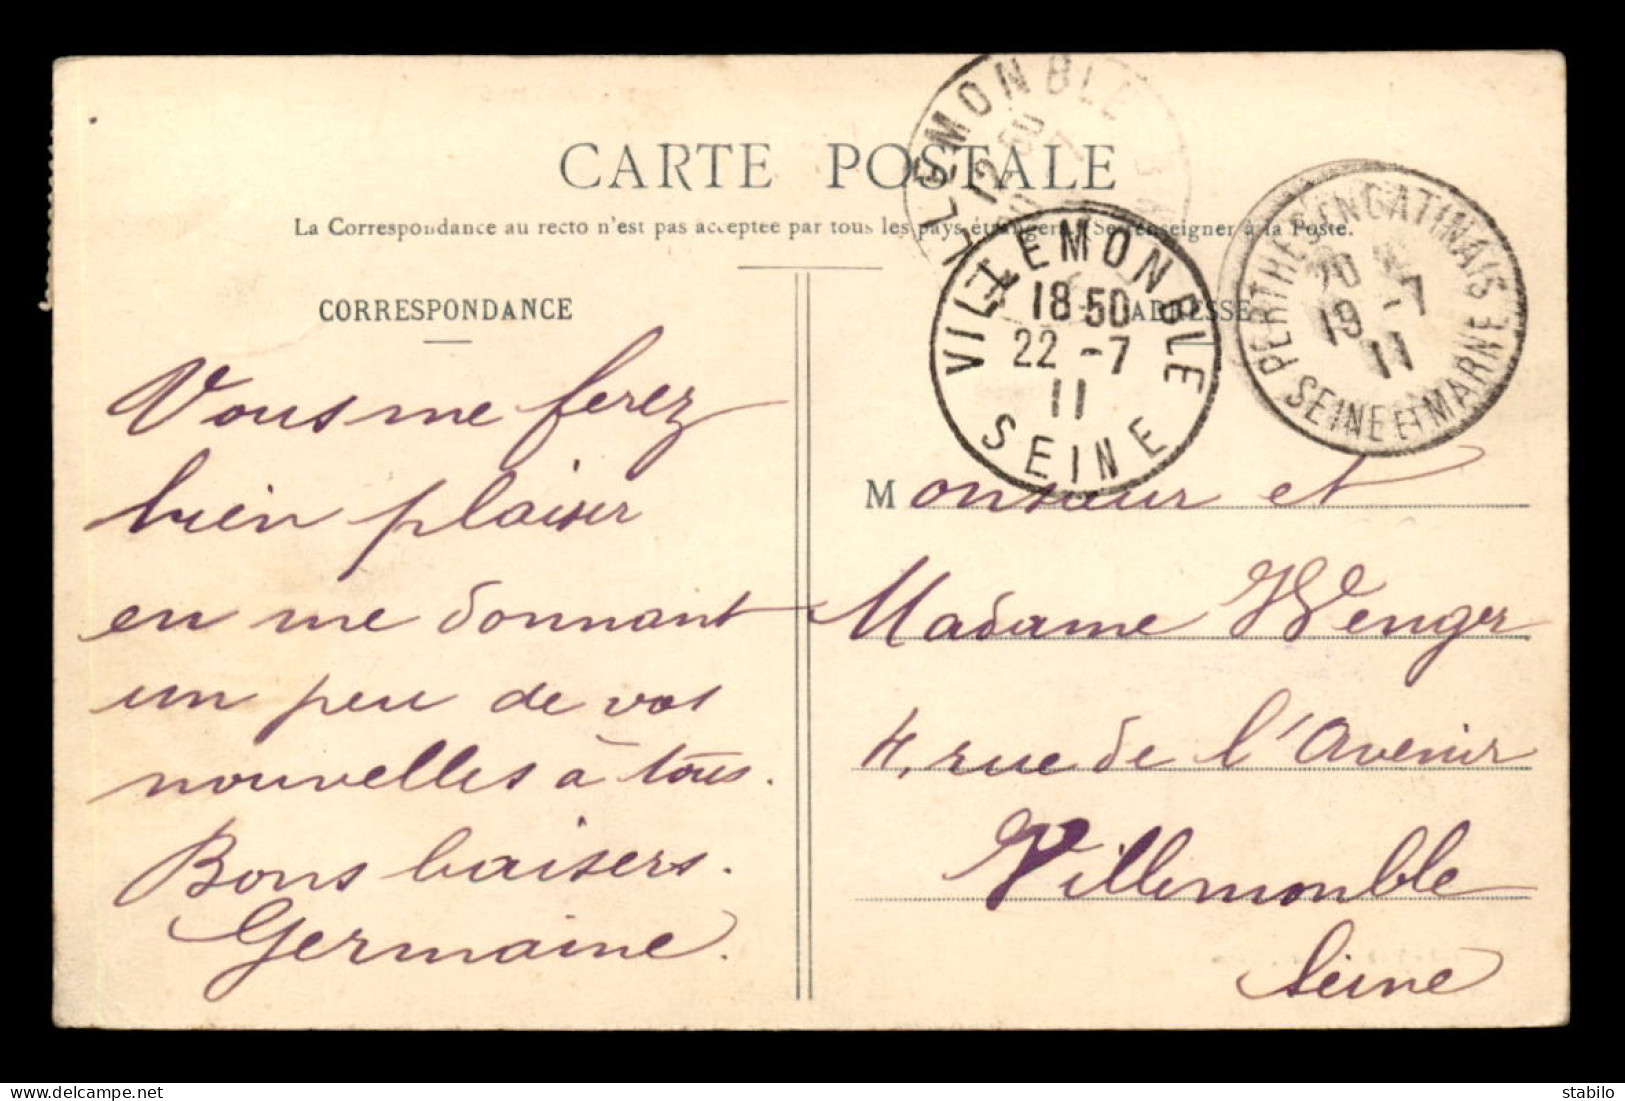 CARTE POSTALE
La Correspondance au recto n'est pas acceptee par tous les pays étrangers. Se renseigner à la Poste.
CORRESPONDANCE
Vous me ferez
bien plaisir
en me donnant
un peu de vos
nouvelles à tous.
Bons baisers.
Germaine.
ADRESSE
Monsieur et
Madame Wenger
4, rue de l'Avenir
Villemomble
Seine
VILLEMONBLE
12 50
VILLEMONBLE
18 50
22 -7
11
SEINE
PERTHES EN GATINAIS
19 -7
11
SEINE ET MARNE
stabilo